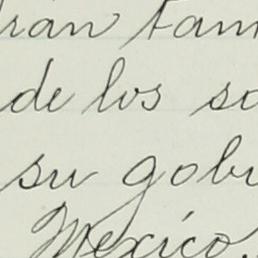 rán tam
de los so
su gobi
Mexico.